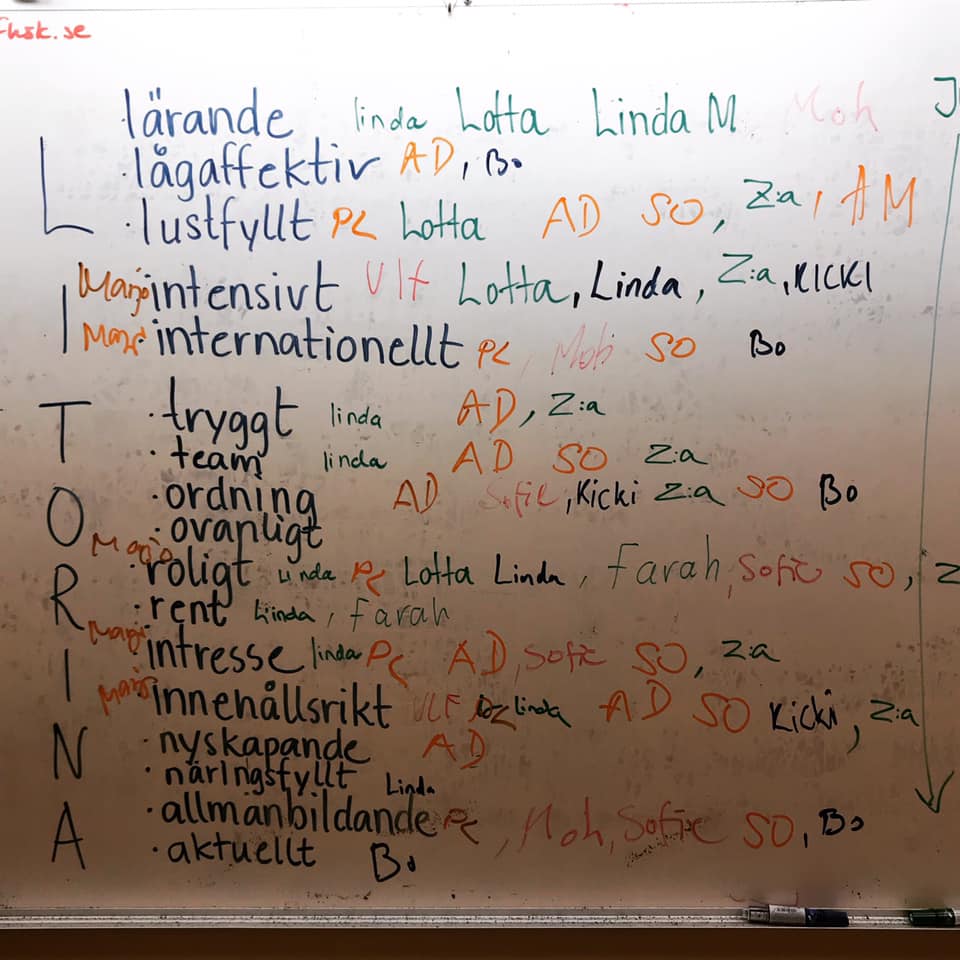 fhsk.se
lärande linda Lotta Linda M Moh
L
·lågaffektiv AD, Bo
·lustfyllt PC Lotta AD SO, Z:a, AM
I Marjo intensivt Ulf Lotta, Linda, Z:a, KICKI
internationellt PC, SO Bo
T ·tryggt linda AD, Z:a
·team linda AD SO Z:a
·ordning AD Sofie, Kicki Z:a SO Bo
O ·ovanligt
Marjo
R ·roligt Linda PC Lotta Linda, Farah, Sofie SO, Z
·rent Linda, Farah
I intresse linda PC AD, Sofie SO, Z:a
innehållsrikt ULF linda AD SO Kicki, Z:a
N ·nyskapande AD
·näringsfyllt Linda
A ·allmänbildande PC, Moh, Sofie SO, Bo
·aktuellt Bo